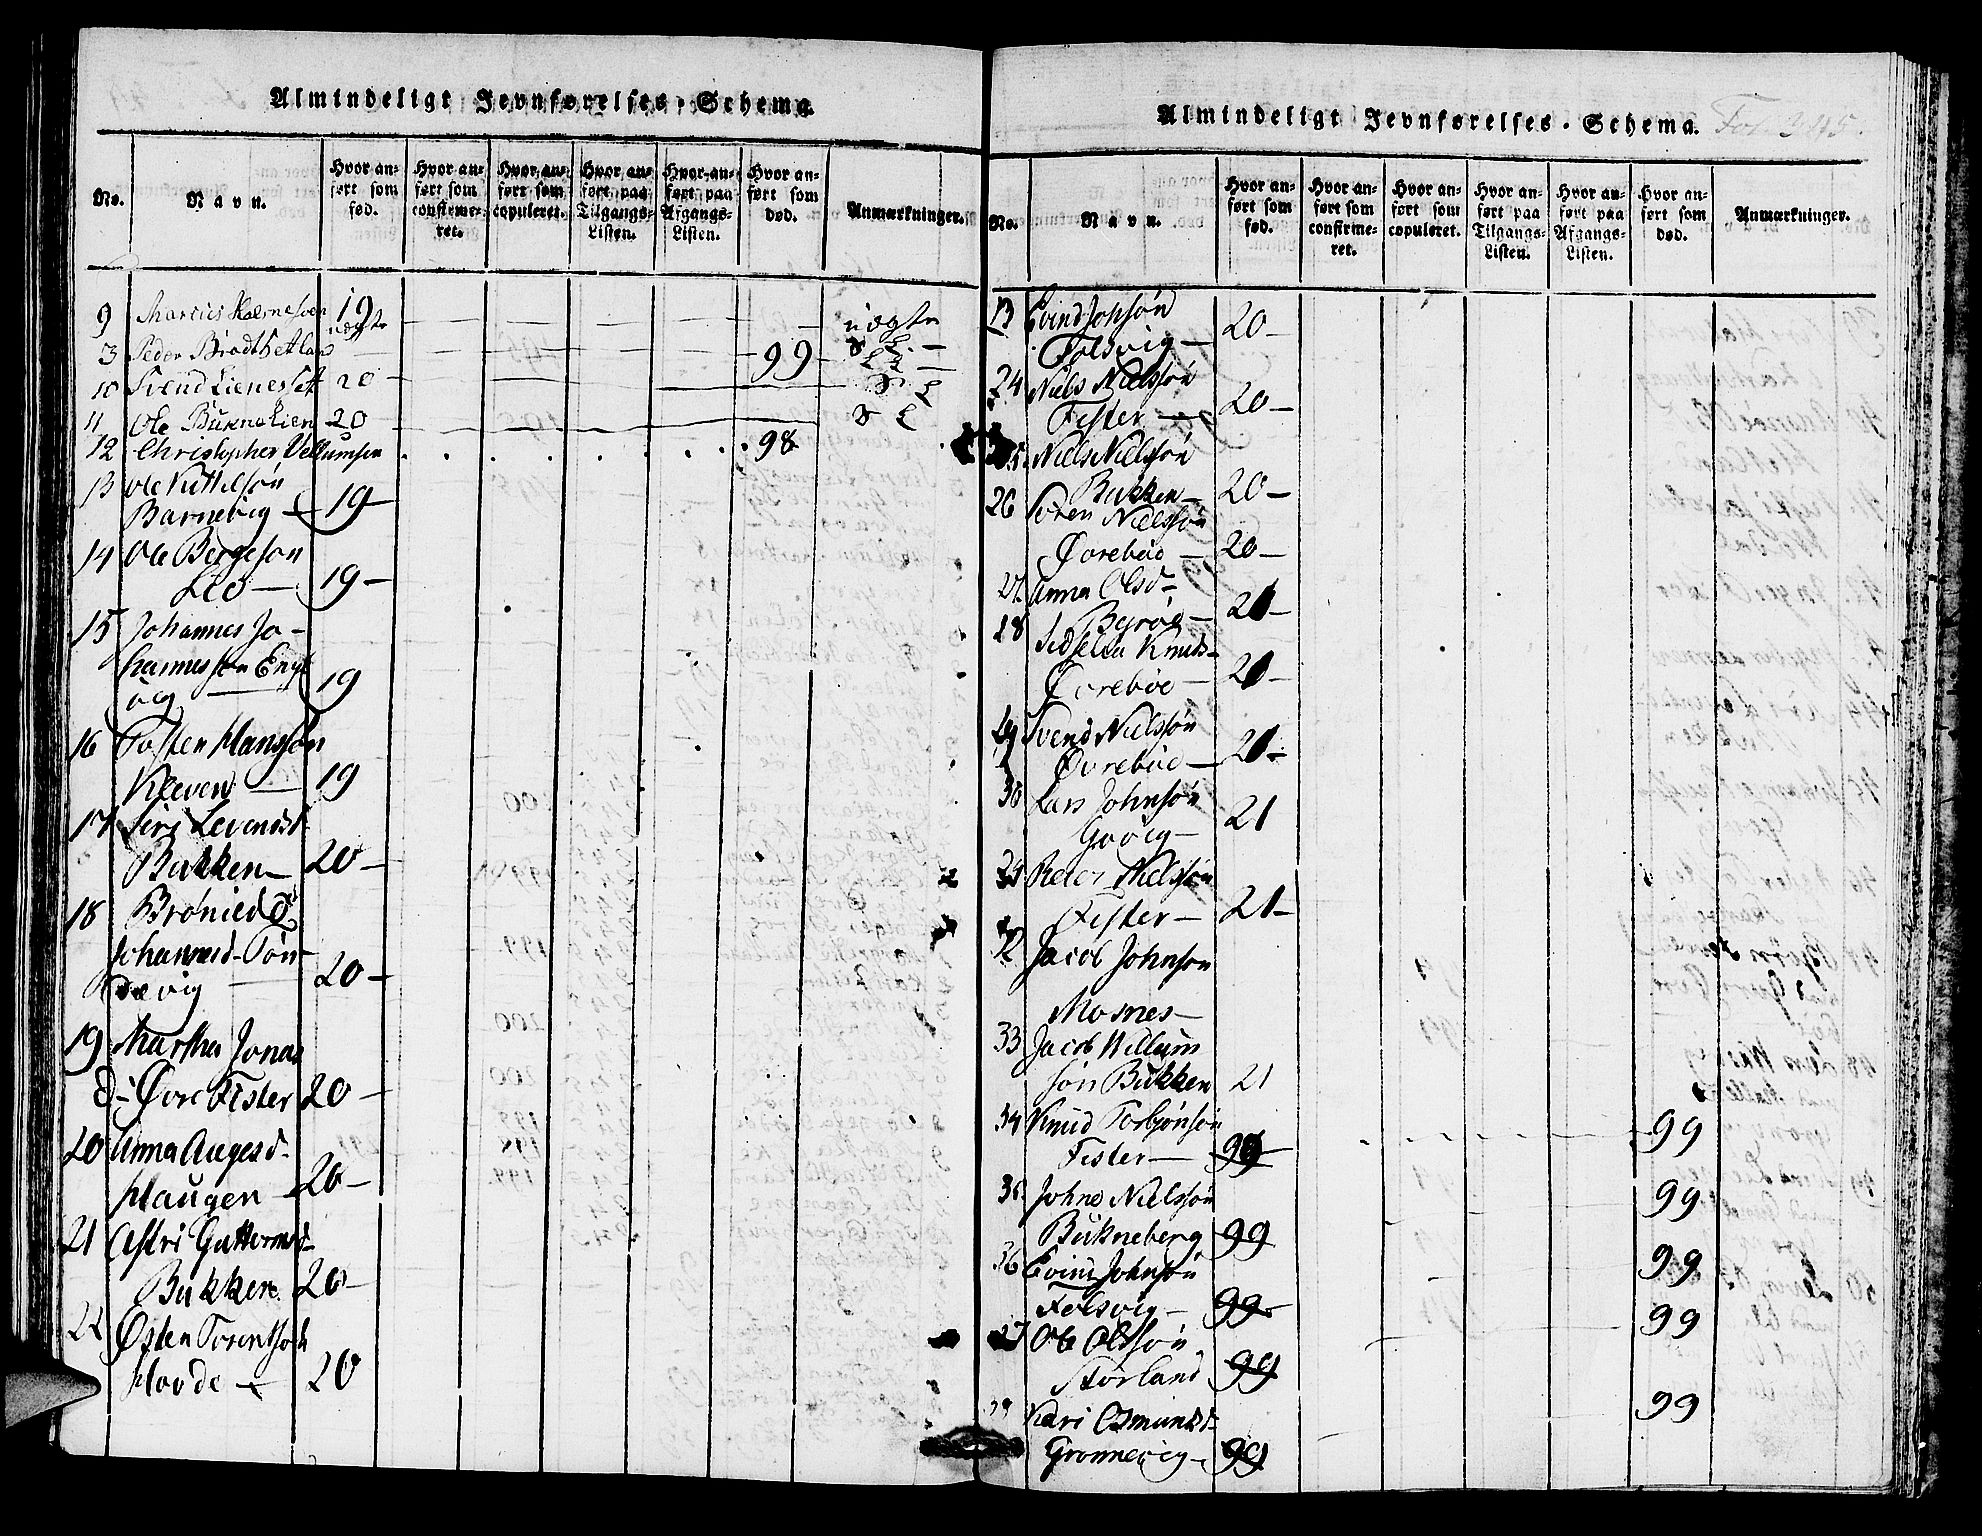 Almindeligt Jevnførelses-Schema.
No.
Navn.
Hvor anført som fød.
Hvor anført som confirmeret.
Hvor anført som copuleret.
Hvor anført paa Tilgangs-Listen.
Hvor anført paa Afgangs-Listen.
Hvor anført som død.
Anmærkninger.
9 19 uægte
3 Peder 99
10 Svend 20
11 Ole 20
12 Christopher Vellumsen 98
13 Ole
Barnevig 19
14 Ole Bergeson
Leo 19
15 Johannes Jo-
hannesson Eng
vig 19
16 Tosten Hansson
Kleven 19
17 Siri
Bukken 20
18
Johannesd. Tøn-
vig 20
19 Martha Jonas
d. Øvre Fister 20
20 Anna Augesd.
Haugen 20
21 Astri Guttormsd.
Bukken 20
22 Østen
Hovde 20
Almindeligt Jevnførelses-Schema. Fol. 345.
No.
Navn.
Hvor anført som fød.
Hvor anført som confirmeret.
Hvor anført som copuleret.
Hvor anført paa Tilgangs-Listen.
Hvor anført paa Afgangs-Listen.
Hvor anført som død.
Anmærkninger.
Evind Johsøn
Folsvig 20
24 Niels Nielssøn
Fister 20
Niels Nielssøn
Bukken 20
26 Soren Nielssøn
Øvrebøe 20
27 Anna Olsd.
Byrøe 21
28 Knuds-
Øvrebøe 21
29 Svend Nielssøn
Øvrebøe 21
30 Lars Johnsøn
Govig 21
Peder Nielssøn
Fister 21
Jacob Johnson
Mosnes
33 Jacob Willum
søn Bukken 21
34 Knud Torbjønsøn
Fister 99 99
35 Johne Nielssøn
Bukneberg 99 99
36 Evind Johnsøn
Folsvig 99 99
37 Ole Olssøn
Storland 99 99
Kari Osmundsd.
Gronnevig 99 99